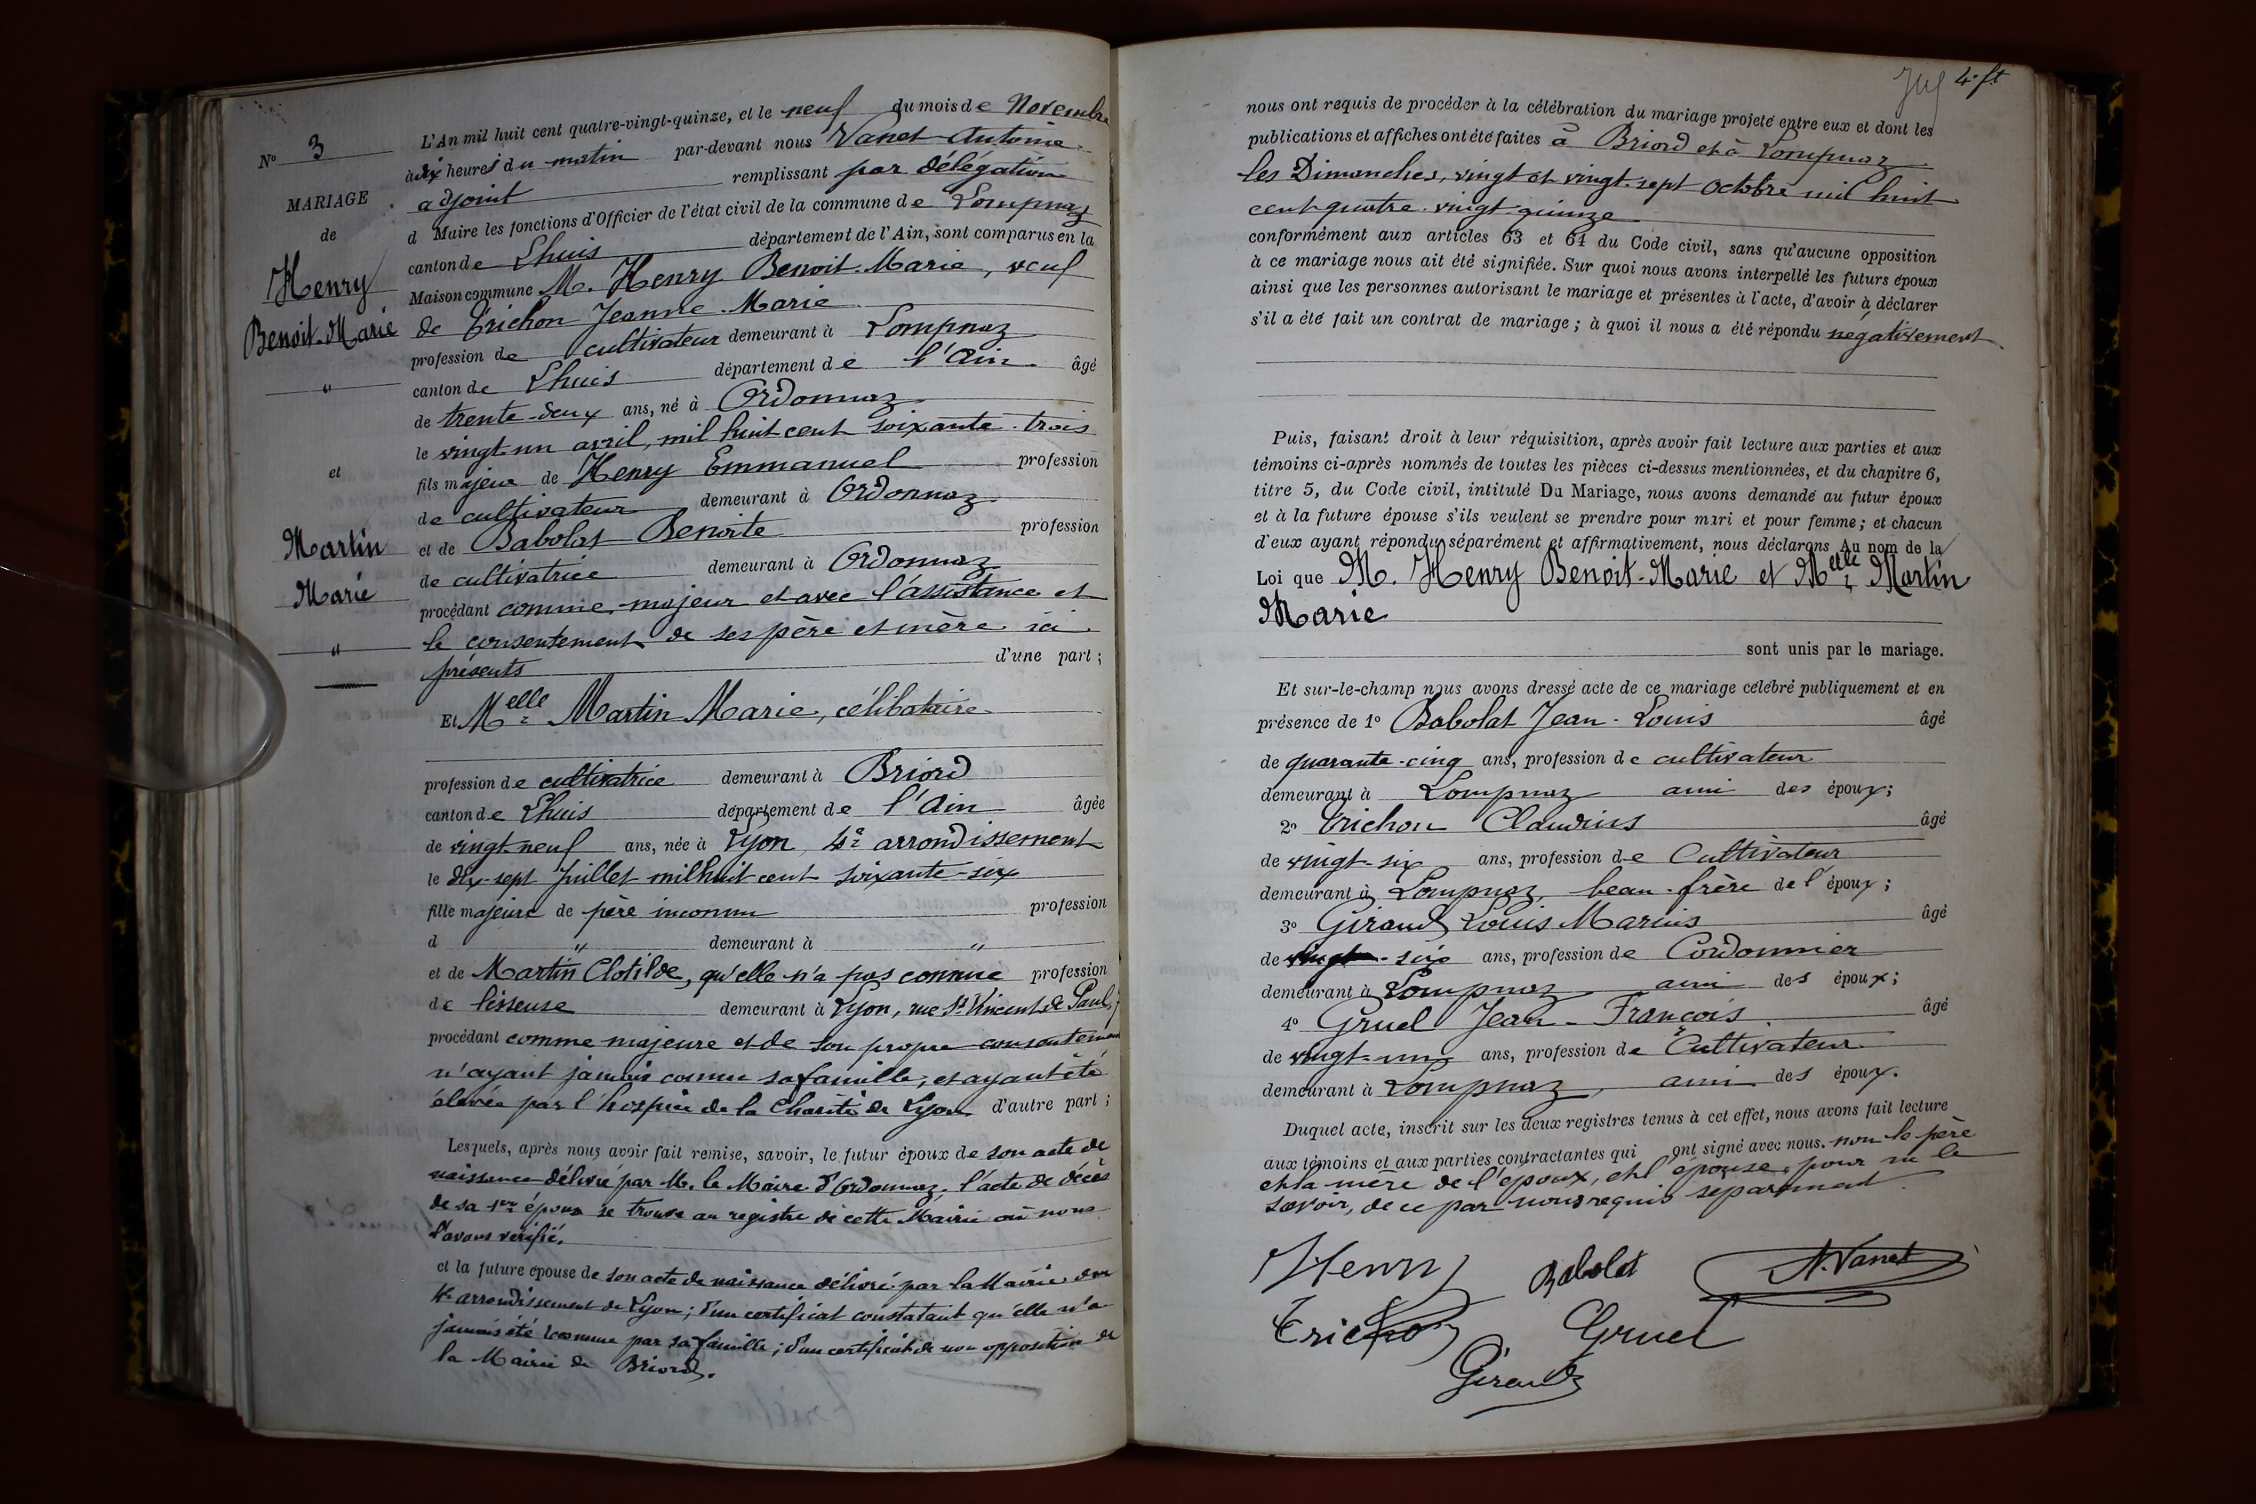 N° 3
MARIAGE
de
Henry
Benoit-Marie
"
et
Martin
Marie
"
L'An mil huit cent quatre-vingt-quinze, et le neuf du mois de Novembre
à dix heures du matin par-devant nous Vanet Antoine
adjoint remplissant par délégation
d Maire les fonctions d'Officier de l'état civil de la commune de Lompnaz
canton de Lhuis département de l'Ain, sont comparus en la
Maison commune M. Henry Benoit-Marie, veuf
de Trichon Jeanne-Marie
profession de cultivateur demeurant à Lompnaz
canton de Lhuis département de l'Ain âgé
de trente-deux ans, né à Ordonnaz
le vingt un avril, mil huit cent soixante-trois
fils majeur de Henry Emmanuel profession
de cultivateur demeurant à Ordonnaz
et de Babolat Benoite profession
de cultivatrice demeurant à Ordonnaz
procédant comme majeur et avec l'assistance et
le consentement de ses père et mère ici
présents d'une part;
Et Melle Martin Marie, célibataire
profession de cultivatrice demeurant à Briord
canton de Lhuis département de l'Ain âgée
de vingt-neuf ans, née à Lyon, 4e arrondissement
le dix-sept Juillet mil huit cent soixante-six
fille majeure de père inconnu profession
d " demeurant à "
et de Martin Clotilde, qu'elle n'a pas connue profession
de lisseuse demeurant à Lyon, rue St Vincent de Paul,
procédant comme majeure et de son propre consentement
n'ayant jamais connu sa famille, et ayant été
élevée par l'hospice de la Charité de Lyon d'autre part;
Lesquels, après nous avoir fait remise, savoir, le futur époux de son acte de
naissance délivré par M. le Maire d'Ordonnaz, l'acte de décès
de sa 1ère épouse se trouve au registre de cette Mairie où nous
l'avons vérifié.
et la future épouse de son acte de naissance délivré par la Mairie du
4e arrondissement de Lyon; d'un certificat constatant qu'elle n'a
jamais été reconnue par sa famille; d'un certificat de non opposition de
la Mairie de Briord.
4. ft
nous ont requis de procéder à la célébration du mariage projeté entre eux et dont les
publications et affiches ont été faites à Briord et à Lompnaz
les Dimanches, vingt et vingt-sept Octobre mil huit
cent quatre-vingt-quinze
conformément aux articles 63 et 64 du Code civil, sans qu'aucune opposition
à ce mariage nous ait été signifiée. Sur quoi nous avons interpellé les futurs époux
ainsi que les personnes autorisant le mariage et présentes à l'acte, d'avoir à déclarer
s'il a été fait un contrat de mariage; à quoi il nous a été répondu négativement
Puis, faisant droit à leur réquisition, après avoir fait lecture aux parties et aux
témoins ci-après nommés de toutes les pièces ci-dessus mentionnées, et du chapitre 6,
titre 5, du Code civil, intitulé Du Mariage, nous avons demandé au futur époux
et à la future épouse s'ils veulent se prendre pour mari et pour femme; et chacun
d'eux ayant répondu séparément et affirmativement, nous déclarons Au nom de la
Loi que M. Henry Benoit-Marie et Melle Martin
Marie
sont unis par le mariage.
Et sur-le-champ nous avons dressé acte de ce mariage célébré publiquement et en
présence de 1° Babolat Jean-Louis âgé
de quarante-cinq ans, profession de cultivateur
demeurant à Lompnaz ami des époux;
2° Trichon Claudius âgé
de vingt-six ans, profession de Cultivateur
demeurant à Lompnaz, beau-frère de l'époux;
3° Giraud Louis Marius âgé
de vingt-six ans, profession de Cordonnier
demeurant à Lompnaz ami des époux;
4° Gruel Jean-François âgé
de vingt-un ans, profession de Cultivateur
demeurant à Lompnaz, ami des époux.
Duquel acte, inscrit sur les deux registres tenus à cet effet, nous avons fait lecture
aux témoins et aux parties contractantes qui ont signé avec nous. non le père
et la mère de l'époux, et l'épouse pour ne le
savoir, de ce par nous requis séparément.
Henry Babolat A. Vanet
Trichon Gruel
Giraud